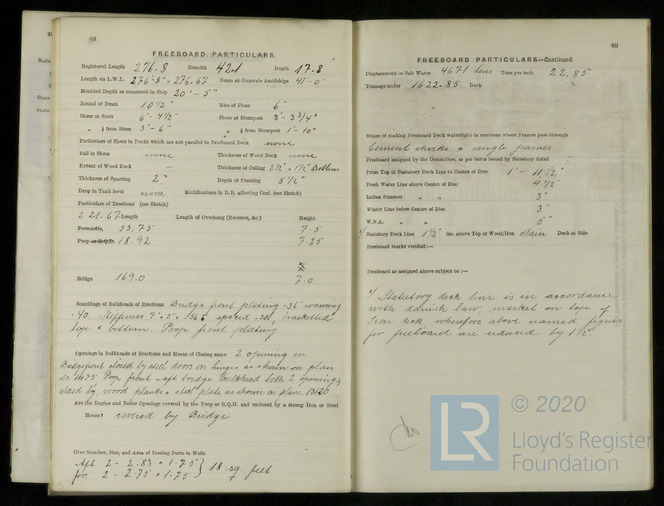 88
FREEBOARD PARTICULARS.
Registered Length 276.8 Breadth 42.1 Depth 17.8
Length on L.W.L. 276'-8" = 276.67 Beam at Gunwale Amidships 41'-0"
Moulded Depth as measured in Ship 20'-5"
Round of Beam 10½" Rise of Floor 6"
Sheer at Stem 6'-4½" Sheer at Sternpost 3'-3¾"
" ⅛ from Stem 3'-6" " ⅛ from Sternpost 1'-10"
Particulars of Sheer in Decks which are not parallel to Freeboard Deck none
Fall in Sheer none Thickness of Wood Deck none
Extent of Wood Deck - Thickness of Ceiling 2½" + 1½" Battens
Thickness of Sparring 2" Depth of Framing 8½"
Drop in Tank level none Modifications in D.B. affecting Cert. (see Sketch)
Particulars of Erections (see Sketch)
221.67 Length Length of Overhang (Recesses, &c.) Height
Forecastle, 33.75 7.5
Poop or R.Q.D. 18.92 7.25
Bridge 169.0 7.0
Scantlings of Bulkheads of Erections Bridge front plating .36 coaming
.40. Stiffeners spaced bracketted
top & bottom. Poop front plating
Openings in Bulkheads of Erections and Means of Closing same 2 opening in
Bridgefront closed by steel doors on hinges as shown on plan
Poop front & aft bridge bulkhead both 2 openings
closed by wood planks & steel plate as shown on plan
Are the Engine and Boiler Openings covered by the Poop or R.Q.D. and enclosed by a strong Iron or Steel
House? covered by Bridge
Give Number, Size, and Area of Freeing Ports in Wells
Aft 2 - 2.83 × 1.75
fore 2 - 2.75 × 1.75 } 18 sq. feet
89
FREEBOARD PARTICULARS—Continued.
Displacement in Salt Water 4671 tons Tons per inch 22.85
Tonnage under 1622.85 Deck
Means of making Freeboard Deck watertight in erections where Frames pass through
Cement chocks & angle frames
Freeboard assigned by the Committee, as per letter issued by Secretary dated
From Top of Statutory Deck Line to Centre of Disc 1'-11½"
Fresh Water Line above Centre of Disc 4½"
Indian Summer " " 3"
Winter Line below Centre of Disc 3"
W.N.A. " " 5"
Statutory Deck Line 1½" ins. above Top of Wood/Iron Main Deck at Side
Freeboard marks verified:—
Freeboard as assigned above subject to:—
Statutory deck line is in accordance
with danish law, marked on top of
Iron deck, wherefore above named figures
for freeboard are reduced by 1½"
LR
© 2020
Lloyd's Register
Foundation